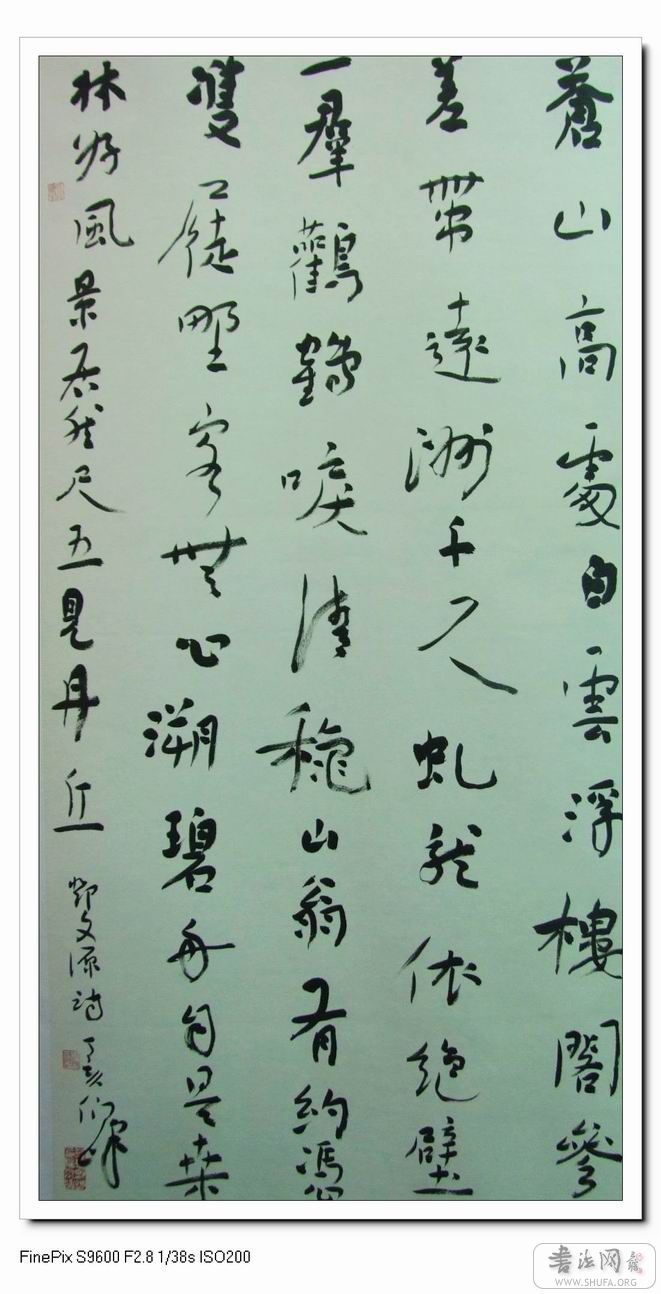 蒼山高處白雲浮樓閣參
差帶遠洲千尺虬龍依絕壁
一羣鸛鶴唳清秋山翁有約馮
雙屐野客無心溯碧舟自是桒
林好風景居然尺五見丹丘
鄧文源詩丁亥
FinePix S9600 F2.8 1/38s ISO200
書法网
WWW.SHUFA.ORG